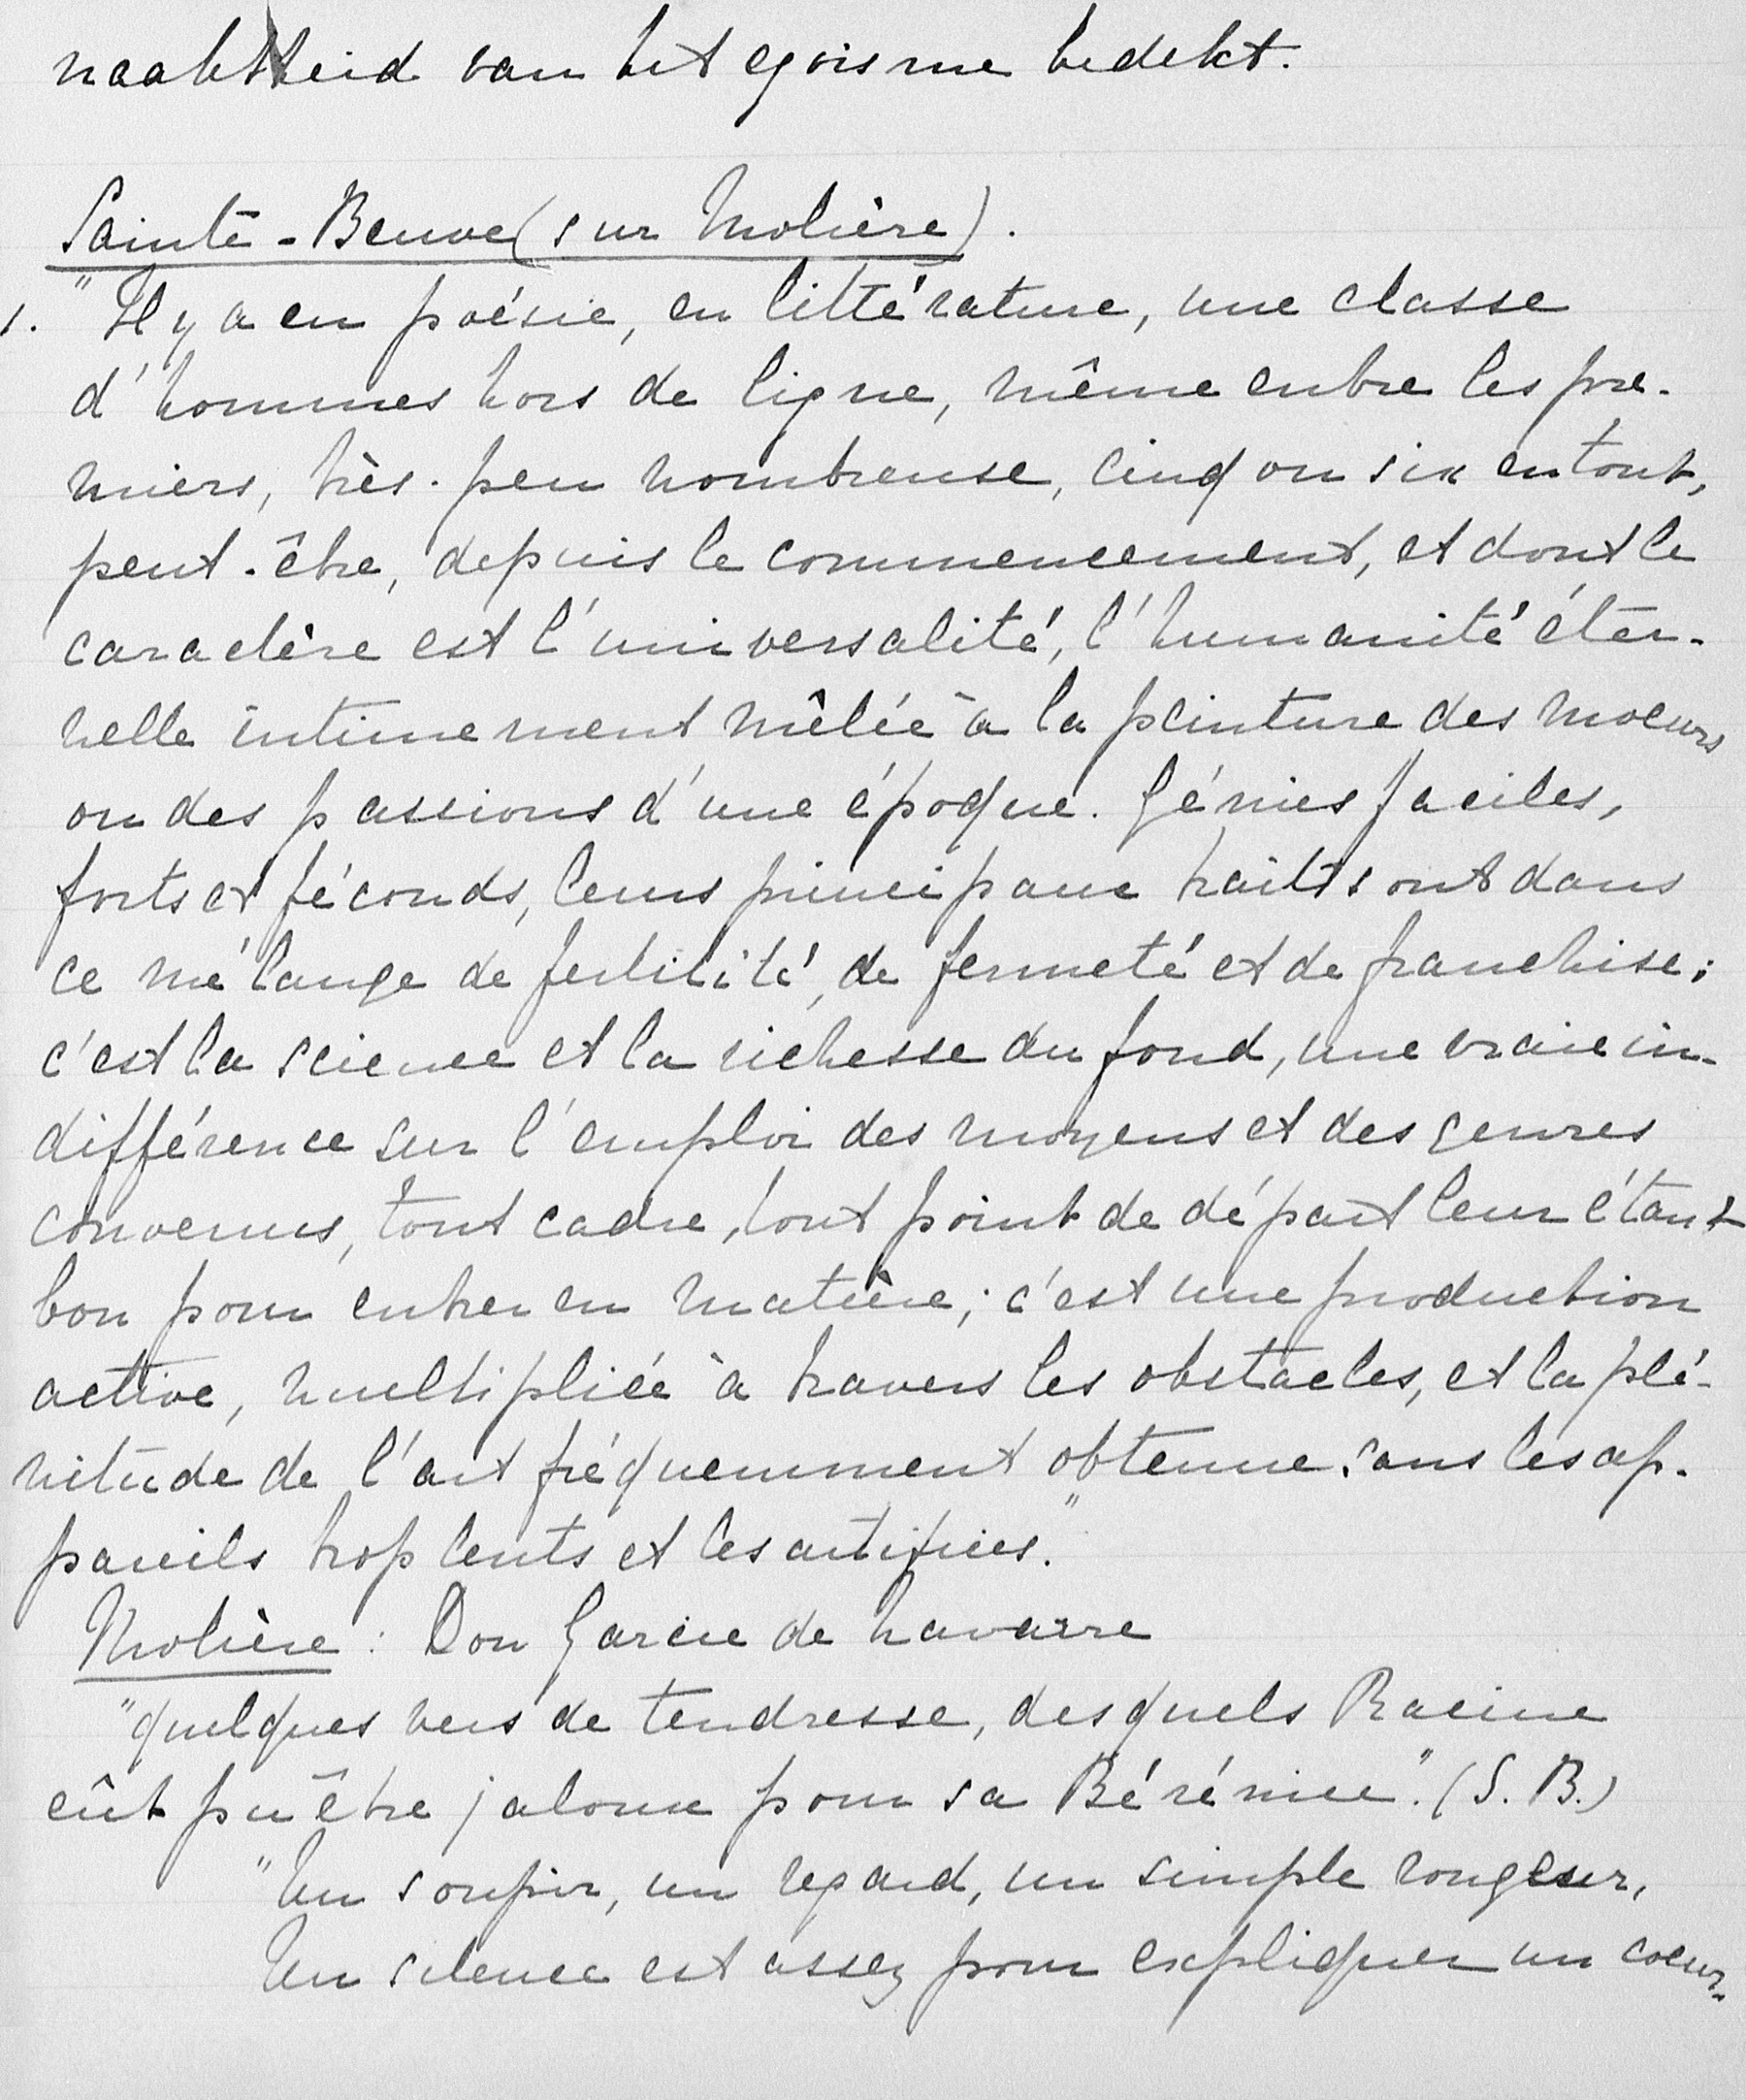 naaktheid van het egoisme bedekt.
Sainte-Beuve (sur Molière).
1. "Il y a en poésie, en littérature, une classe
d'hommes hors de ligne, même entre les pre-
miers, très-peu nombreuse, cinq ou six en tout,
peut-être, depuis le commencement, et dont le
caractère est l'universalité, l'humanité éter-
nelle intimement mêlée à la peinture des moeurs
ou des passions d'une époque. Génies faciles,
forts et féconds, leurs principaux traits sont dans
ce mélange de fertilité, de fermeté et de franchise;
c'est la science et la richesse du fond, une vraie in-
différence sur l'emploi des moyens et des genres
convenus, tout cadre, tout point de départ leur étant
bon pour entrer en matière; c'est une production
active, multipliée à travers les obstacles, et la plé-
nitude de l'art fréquemment obtenue sans les ap-
pareils trop lents et les artifices."
Molière: Don Garcie de Navarre
"quelques vers de tendresse, desquels Racine
eût pu être jaloux pour sa Bérénice". (S. B.)
"Un soupir, un regard, un simple rougeur,
Un silence est assez pour expliquer un coeur.